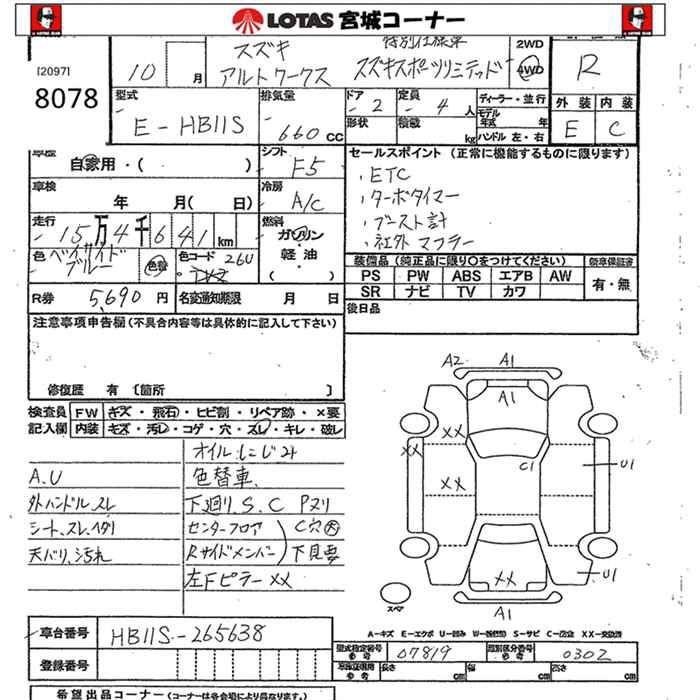 LOTAS 宮城コーナー
[2097]
8078
10 月
スズキ
アルトワークス
特別仕様車
スズキスポーツリミテッド
2WD
4WD
R
型式
E-HB11S
排気量
660 cc
ドア 2
定員 4 人
形状
積載 kg
ディーラー・並行
モデル年式 年
ハンドル 左・右
外装 内装
E C
車歴
自家用・( )
シフト F5
車検
年 月( 日)
冷房 A/C
走行
15万4千641km
燃料
ガソリン
軽油
( )
色 ベイサイドブルー
色替
色コード 26U
R券 5,690円
名変通知期限 月 日
セールスポイント(正常に機能するものに限ります)
・ETC
・ターボタイマー
・ブースト計
・社外マフラー
装備品(純正品に限り○をつけてください)
新車保証書
PS PW ABS エアB AW
SR ナビ TV カワ
有・無
後日品
注意事項申告欄(不具合内容等は具体的に記入して下さい)
修復歴 有 〔箇所 〕
検査員 FW キズ・飛石・ヒビ割・リペア跡・×要
記入欄 内装 キズ・汚レ・コゲ・穴・スレ・キレ・破レ
オイルにじみ
A.U
色替車.
外ハンドル.スレ
下廻り.S.C Pヌリ
シート.スレ.ヘタリ
センターフロア
C穴大
天バリ.汚れ
Rサイドメンバー
下見要
左FピラーXX
A2 A1
A1
XX
XX
C1
U1
XX
XX
U1
A1
スペア
A-キズ E-エクボ U-凹み S-サビ C-腐食 XX-交換済
車台番号 HB11S-265638
登録番号
型式指定番号 参考 07819
類別区分番号 参考 0302
車庫証明用 参考
長さ cm
幅 cm
高さ cm
希望出品コーナー(コーナーは各会場により異なります。)